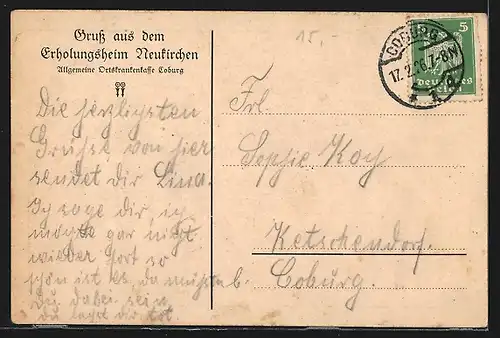 Gruß aus dem
Erholungsheim Neukirchen
Allgemeine Ortskrankenkasse Coburg
15,-
COBURG
17.2.26.7-8N
5
Deutsches
Reich
Die herzligsten
Grüße von hier
sendet dir Lina.
Ich sage dir, ich
möchte gar nicht
wieder fort so
schön ist es, da müßtest
du dabei sein
du lachst dir tot
Frl.
Sophie Koch
Ketschendorf
b. Coburg.